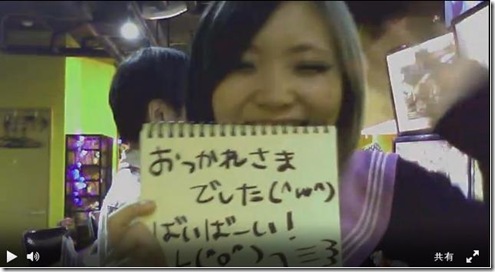 おつかれさま
でした(^ω^)
ばいばーい!
共有